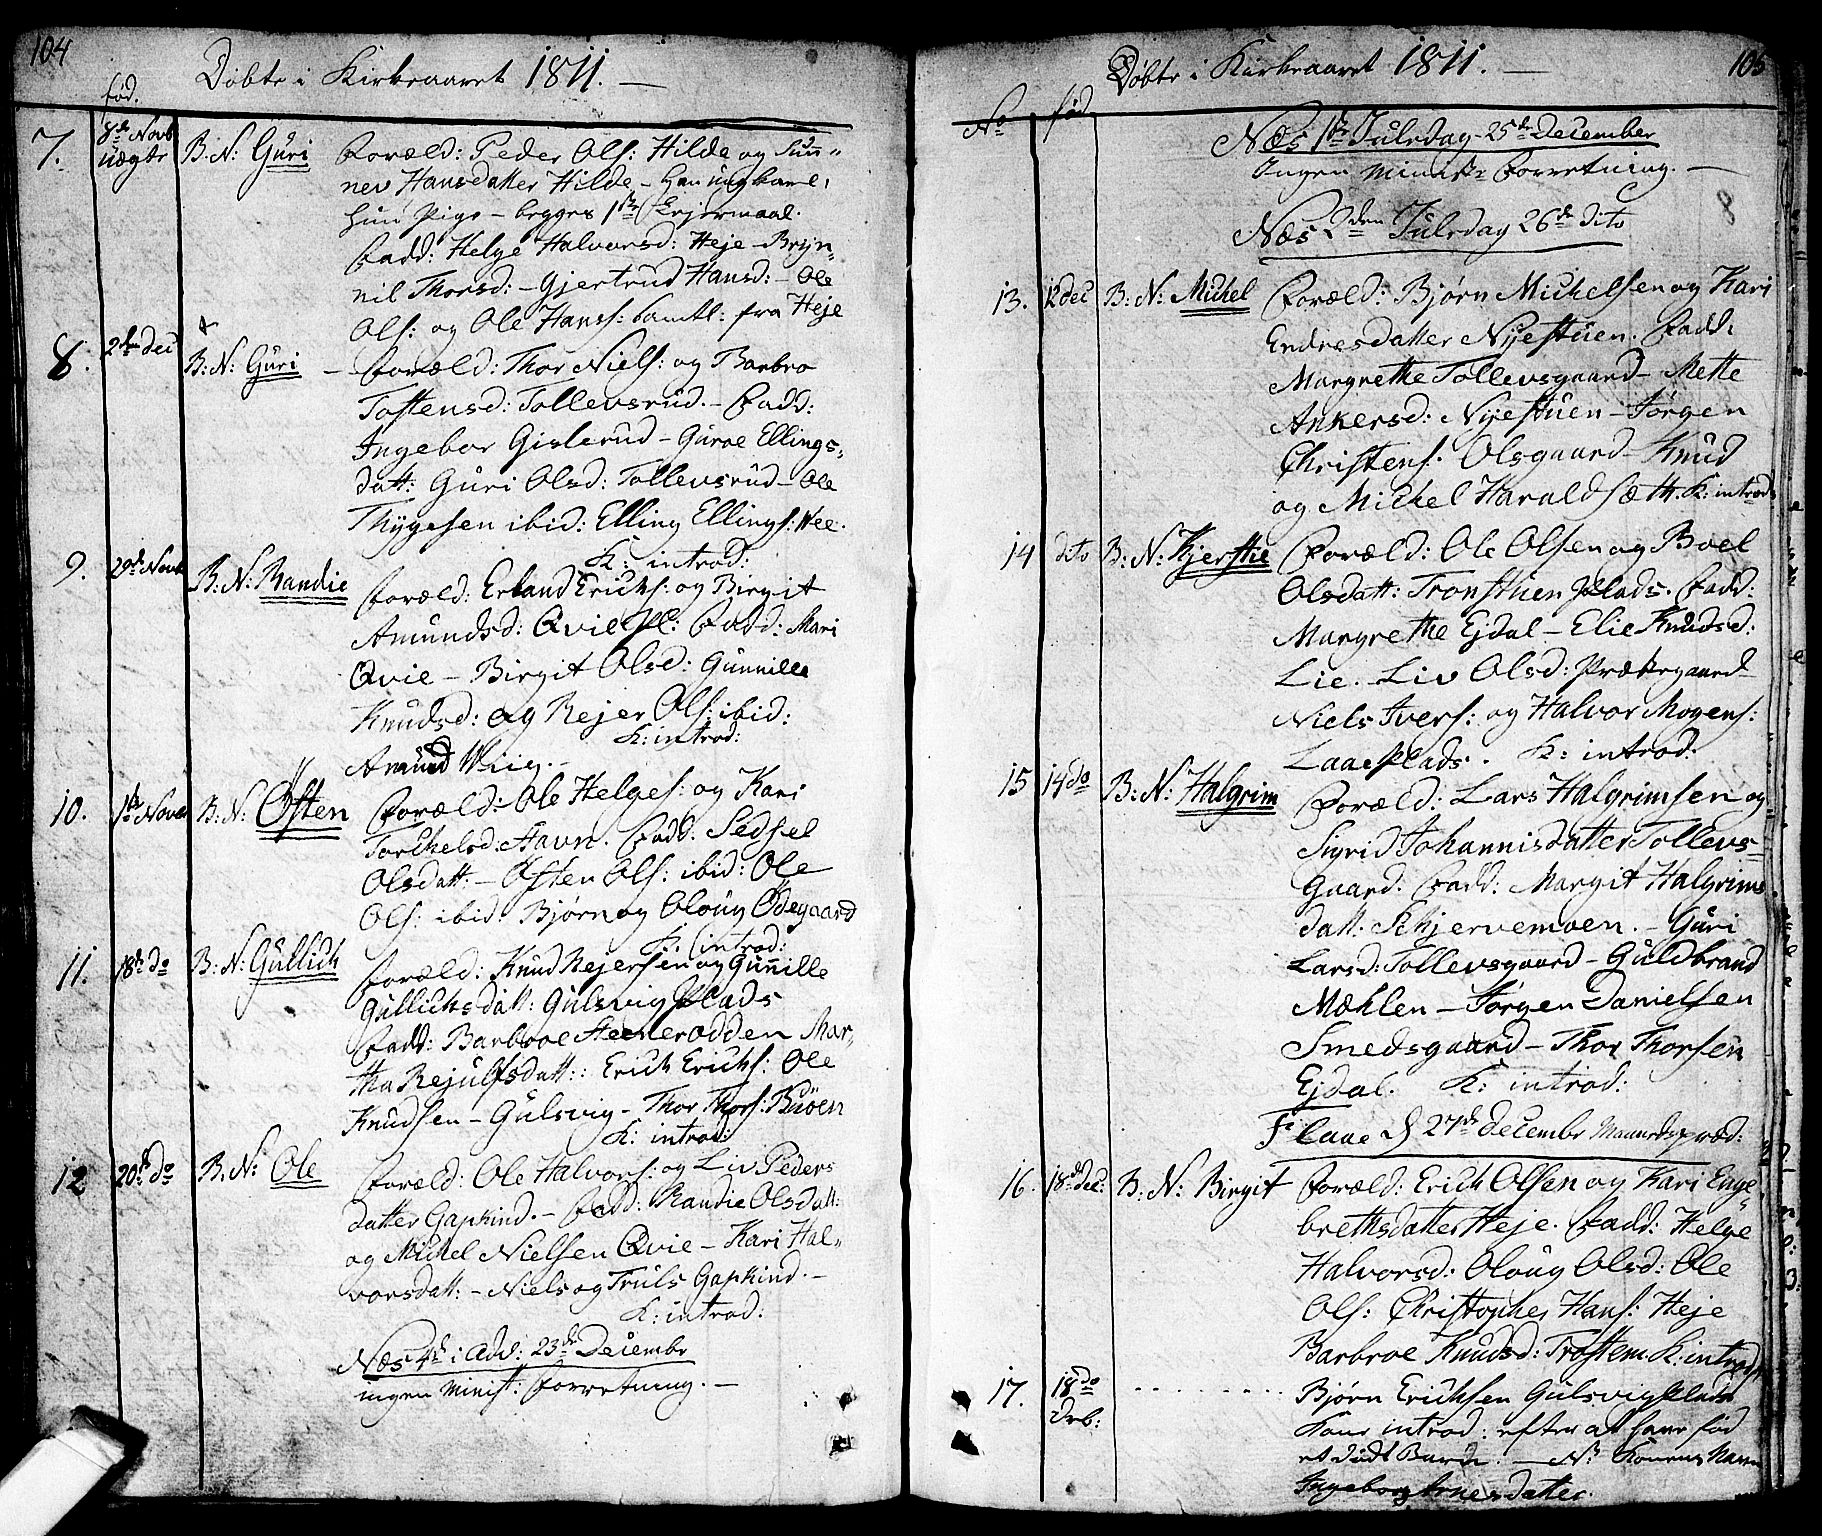 104
Døbte i Kirkeaaret 1811. —
fød.
7. 8de Novb uægte B. N: Guri Foræld: Peder Ols: Hilde og Sun=
nev Hansdatter Hilde – han ungkarl,
hun Pige – begges 1ste Lejermaal.
Fadd: Helge Halvorsd: Heje – Bryn=
nil Thorsd: – Gjertrud Hansd: – Ole
Ols: og Ole Hanss: samtl: fra Heje
8. 2de dec B. N: Guri – Foræld: Thor Niels: og Barbro
Tostensd: Tollevsrud. – Fadd:
Ingebor Gislerud – Guroe Ellings=
datt: Guri Olsd: Tollevsrud – Ole
Thygesen ibid: Elling Ellings: Nee.
K: introd:
9. 29de Novb B: N: Randie Foræld: Erland Erichs: og Birgit
Amundsd: Qvie Pl: Fadd: Mari
Qvie – Birgit Olsd: Gunnille
Knudsd: og Rejer Ols: ibid:
K: introd:
Amund Wiig. –
10. 1ste Nove B: N: Østen Foræld: Ole Helges: og Kari
Torchelsd: Havn. Fadd: Sedsel
Olsdatt: – Østen Ols: ibid: Ole
Ols: ibid: Bjørn og Oloug Ødegaard
K. introd:
11. 18de do B. N: Gullich Foræld: Knud Rejersen og Gunille
Gullichsdatt: Gulsvig Plads
Fadd: Barbroe Steenerodden Mar=
tha Rejulfsdatt:: Erich Erichs: Ole
Knudsen – Gulsvig – Thor Thors: Buøen
K: introd:
12 20de do B. N: Ole Foræld: Ole Halvors: og Liv Peders
datter Gapkind. – Fadd: Randie Olsdatt:
og Michel Nielsen Qvie – Kari Hal=
vorsdatt: – Niels og Truls Gapkind. –
K: introd:
Næs 4de i Adv: 23de Decembr
ingen minist: Forretning. –
105
Døbte i Kirkeaaret 1811. —
No fød
Næs 1ste Juledag 25de December
Ingen Minist: Forretning. —
8
Næs 2den Juledag 26de dito
13. 12 dec B: N: Michel Foræld: Bjørn Michelsen og Kari
Endresdatter Nyestuen. Fadd:
Margrethe Tollevsgaard – Mette
Ankersd: Nyestuen – Jørgen
Christens: Olsgaard – Knud
og Michel Haraldsæth. K: introd:
14 dito B: N: Kjerstie Foræld: Ole Olsen og Boel
Olsdatt: Tronstuen Plads. Fadd:
Margrethe Ejdal – Elie Knudsd:
Lie. Liv Olsd: Præstegaard –
Niels Ivers: og Halvor Mogens:
Laae Plads. K: introd:
15 14 do B: N: Halgrim Foræld: Lars Halgrimsen og
Sigrid Johannisdatter Tollevs=
Gaard. Fadd: Margit Halgrims
datt: Schjervemoen. – Guri
Larsd: Tollevsgaard – Guldbrand
Mæhlen – Jørgen Danielsen
Smedsgaard – Thor Thorsen
Ejdal. K: introd:
Flaae D 27de Decembr Maanedspræd:
16. 18de dec: B: N: Birgit Foræld: Erich Olsen og Kari Enge=
brethsdatter Heje. Fadd: Helge
Halvorsd: Oloug Olsd: Ole
Ols: Christopher Hans: Heje
Barbroe Knudsd: Trostem K: introd:
17. 18 do Bjørn Erichsen Gulsvig Plads
Kone introd: efter at have fød
et dødt Barn. – NB Konens Navn
Ingeborg Arnesdatter